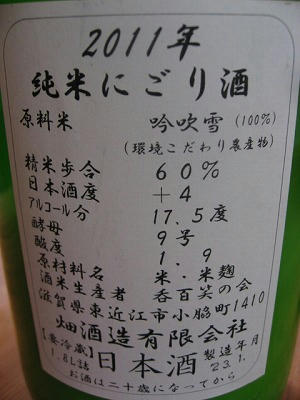 2011年
純米にごり酒
原料米 吟吹雪 (100%)
(環境こだわり農産物)
精米歩合 60%
日本酒度 +4
アルコール分 17.5度
酵母 9号
酸度 1.9
原材料名 米・米麹
酒米生産者 呑百笑の会
滋賀県東近江市小脇町1410
畑酒造有限会社
【要冷蔵】
1.8L詰
日本酒
製造年月
23.1.
お酒は二十歳になってから